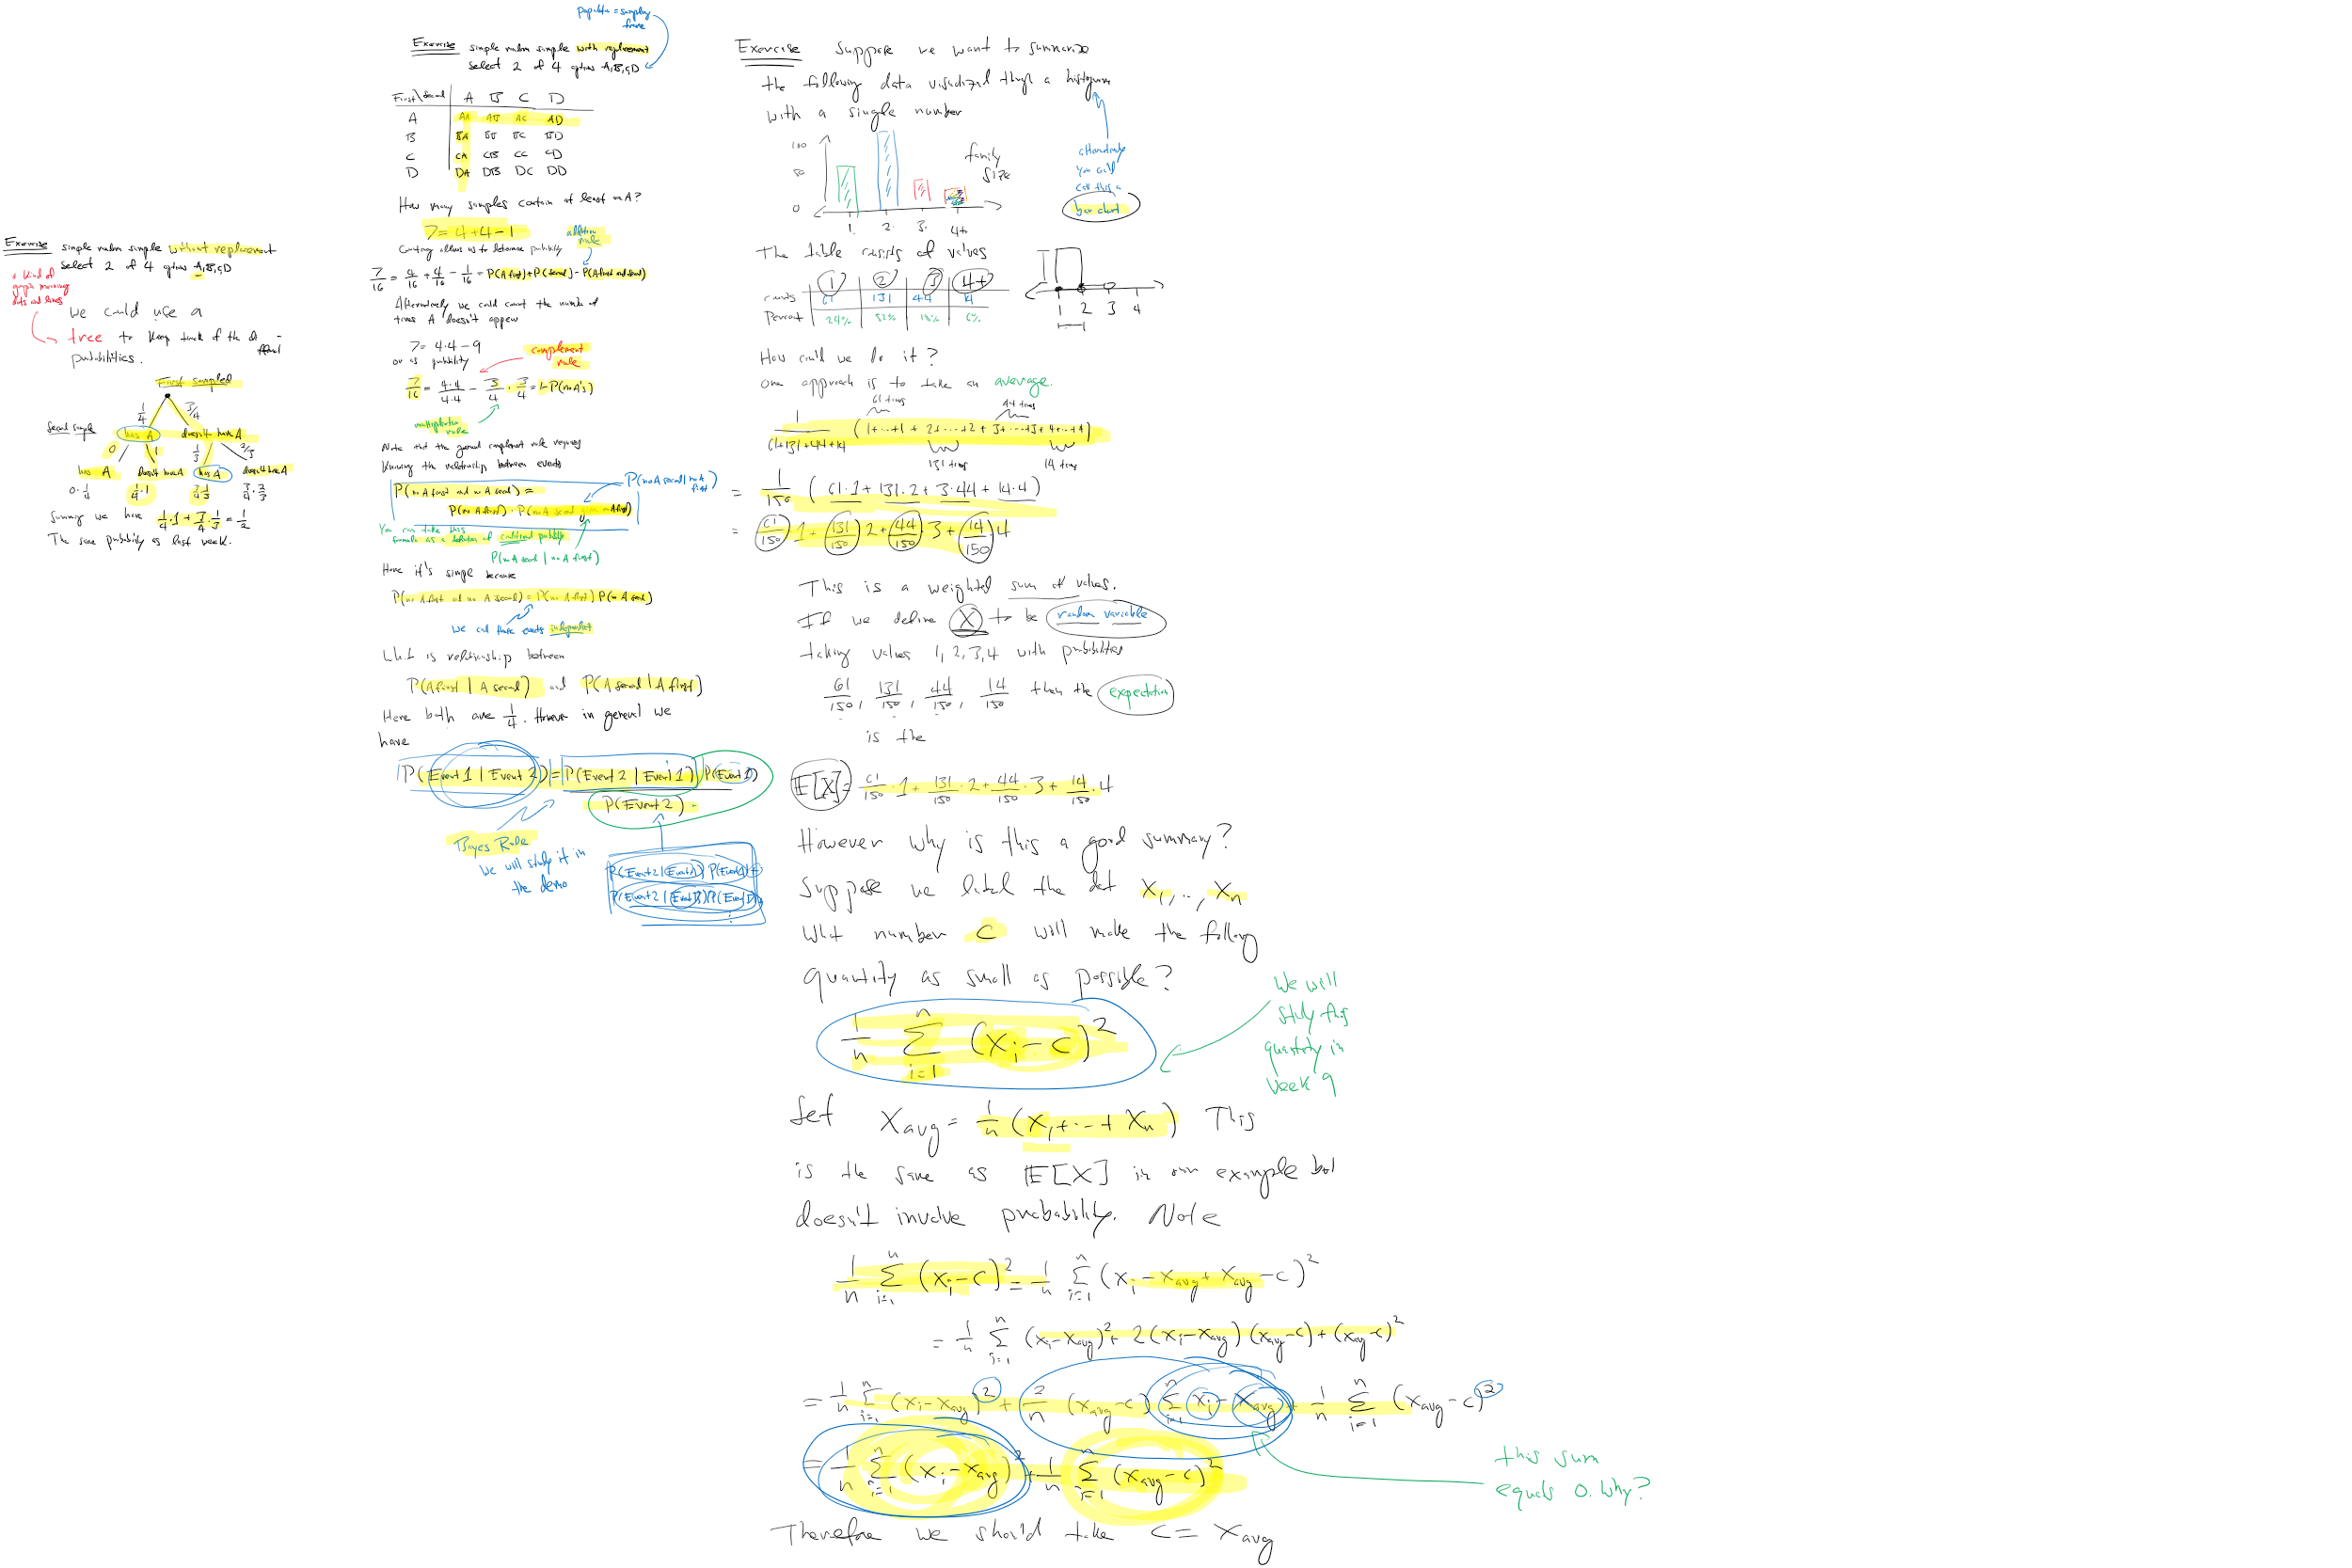 Exercise simple random sample without replacement
select 2 of 4 options A,B,C,D
a kind of
graph meaning
dots and lines
We could use a
tree to keep track of the different
probabilities.
First sampled
1/4 3/4
Second sample
has A doesn't have A
0 1 1/3 2/3
has A doesn't have A has A doesn't have A
0·1/4 1/4·1 3/4·1/3 3/4·2/3
Summing we have 1/4·1+3/4·1/3=1/2
The same probability as last week.
population = sampling
frame
Exercise simple random sample with replacement
select 2 of 4 options A,B,C,D
First\Second A B C D
A AA AB AC AD
B BA BB BC BD
C CA CB CC CD
D DA DB DC DD
How many samples contain at least one A?
7=4+4-1
addition
rule
Counting allows us to determine probability
7/16=4/16+4/16-1/16=P(A first)+P(A second)-P(A first and second)
Alternatively we could count the number of
times A doesn't appear
7=4·4-9
or as probability
complement
rule
7/16=4·4/4·4-3/4·3/4=1-P(no A's)
multiplication
rule
Note that the general complement rule requires
knowing the relationship between events
P(no A second | no A
first)
P(no A first and no A second)=
P(no A first)·P(no A second given no A first)
You can take this
formula as a definition of conditional probability
P(no A second | no A first)
Here it's simple because
P(no A first and no A second)=P(no A first)P(no A second)
We call these events independent
What is relationship between
P(A first | A second) and P(A second | A first)
Here both are 1/4. However in general we
have
P(Event 1 | Event 2)=P(Event 2 | Event 1)P(Event 1)
P(Event 2)
Bayes Rule
We will study it in
the demo
Exercise Suppose we want to summarize
the following data visualized through a histogram
with a single number
alternatively
you could
call this a
bar chart
100
50
0
1. 2. 3. 4+
family
size
The table consists of values
1 2 3 4+
counts 61 131 44 14
Percent 24% 52% 18% 6%
1 2 3 4
How could we do it?
One approach is to take an average.
61 times 44 times
1/(61+131+44+14) (1+...+1 + 2+...+2 + 3+...+3+4+...+4)
131 times 14 times
= 1/150 (61·1+131·2+3·44+14·4)
= 61/150·1+131/150·2+44/150·3+14/150·4
This is a weighted sum of values.
If we define X to be random variable
taking values 1,2,3,4 with probabilities
61/150, 131/150, 44/150, 14/150 then the expectation
is the
E[X]=61/150·1+131/150·2+44/150·3+14/150·4
However why is this a good summary?
Suppose we label the dat x₁,..,xₙ
What number c will make the following
quantity as small as possible?
1/n Σᵢ₌₁ⁿ (xᵢ-c)²
We will
study this
quantity in
week 9
Set x_avg=1/n(x₁+...+xₙ) This
is the same as E[X] in our example but
doesn't involve probability. Note
1/n Σᵢ₌₁ⁿ (xᵢ-c)²=1/n Σᵢ₌₁ⁿ (xᵢ-x_avg+x_avg-c)²
=1/n Σᵢ₌₁ⁿ (xᵢ-x_avg)²+2(xᵢ-x_avg)(x_avg-c)+(x_avg-c)²
=1/n Σᵢ₌₁ⁿ (xᵢ-x_avg)²+2/n(x_avg-c)Σᵢ₌₁ⁿ xᵢ-x_avg+1/n Σᵢ₌₁ⁿ (x_avg-c)²
=1/n Σᵢ₌₁ⁿ (xᵢ-x_avg)²+1/n Σᵢ₌₁ⁿ (x_avg-c)²
this sum
equals 0. Why?
Therefore we should take c=x_avg